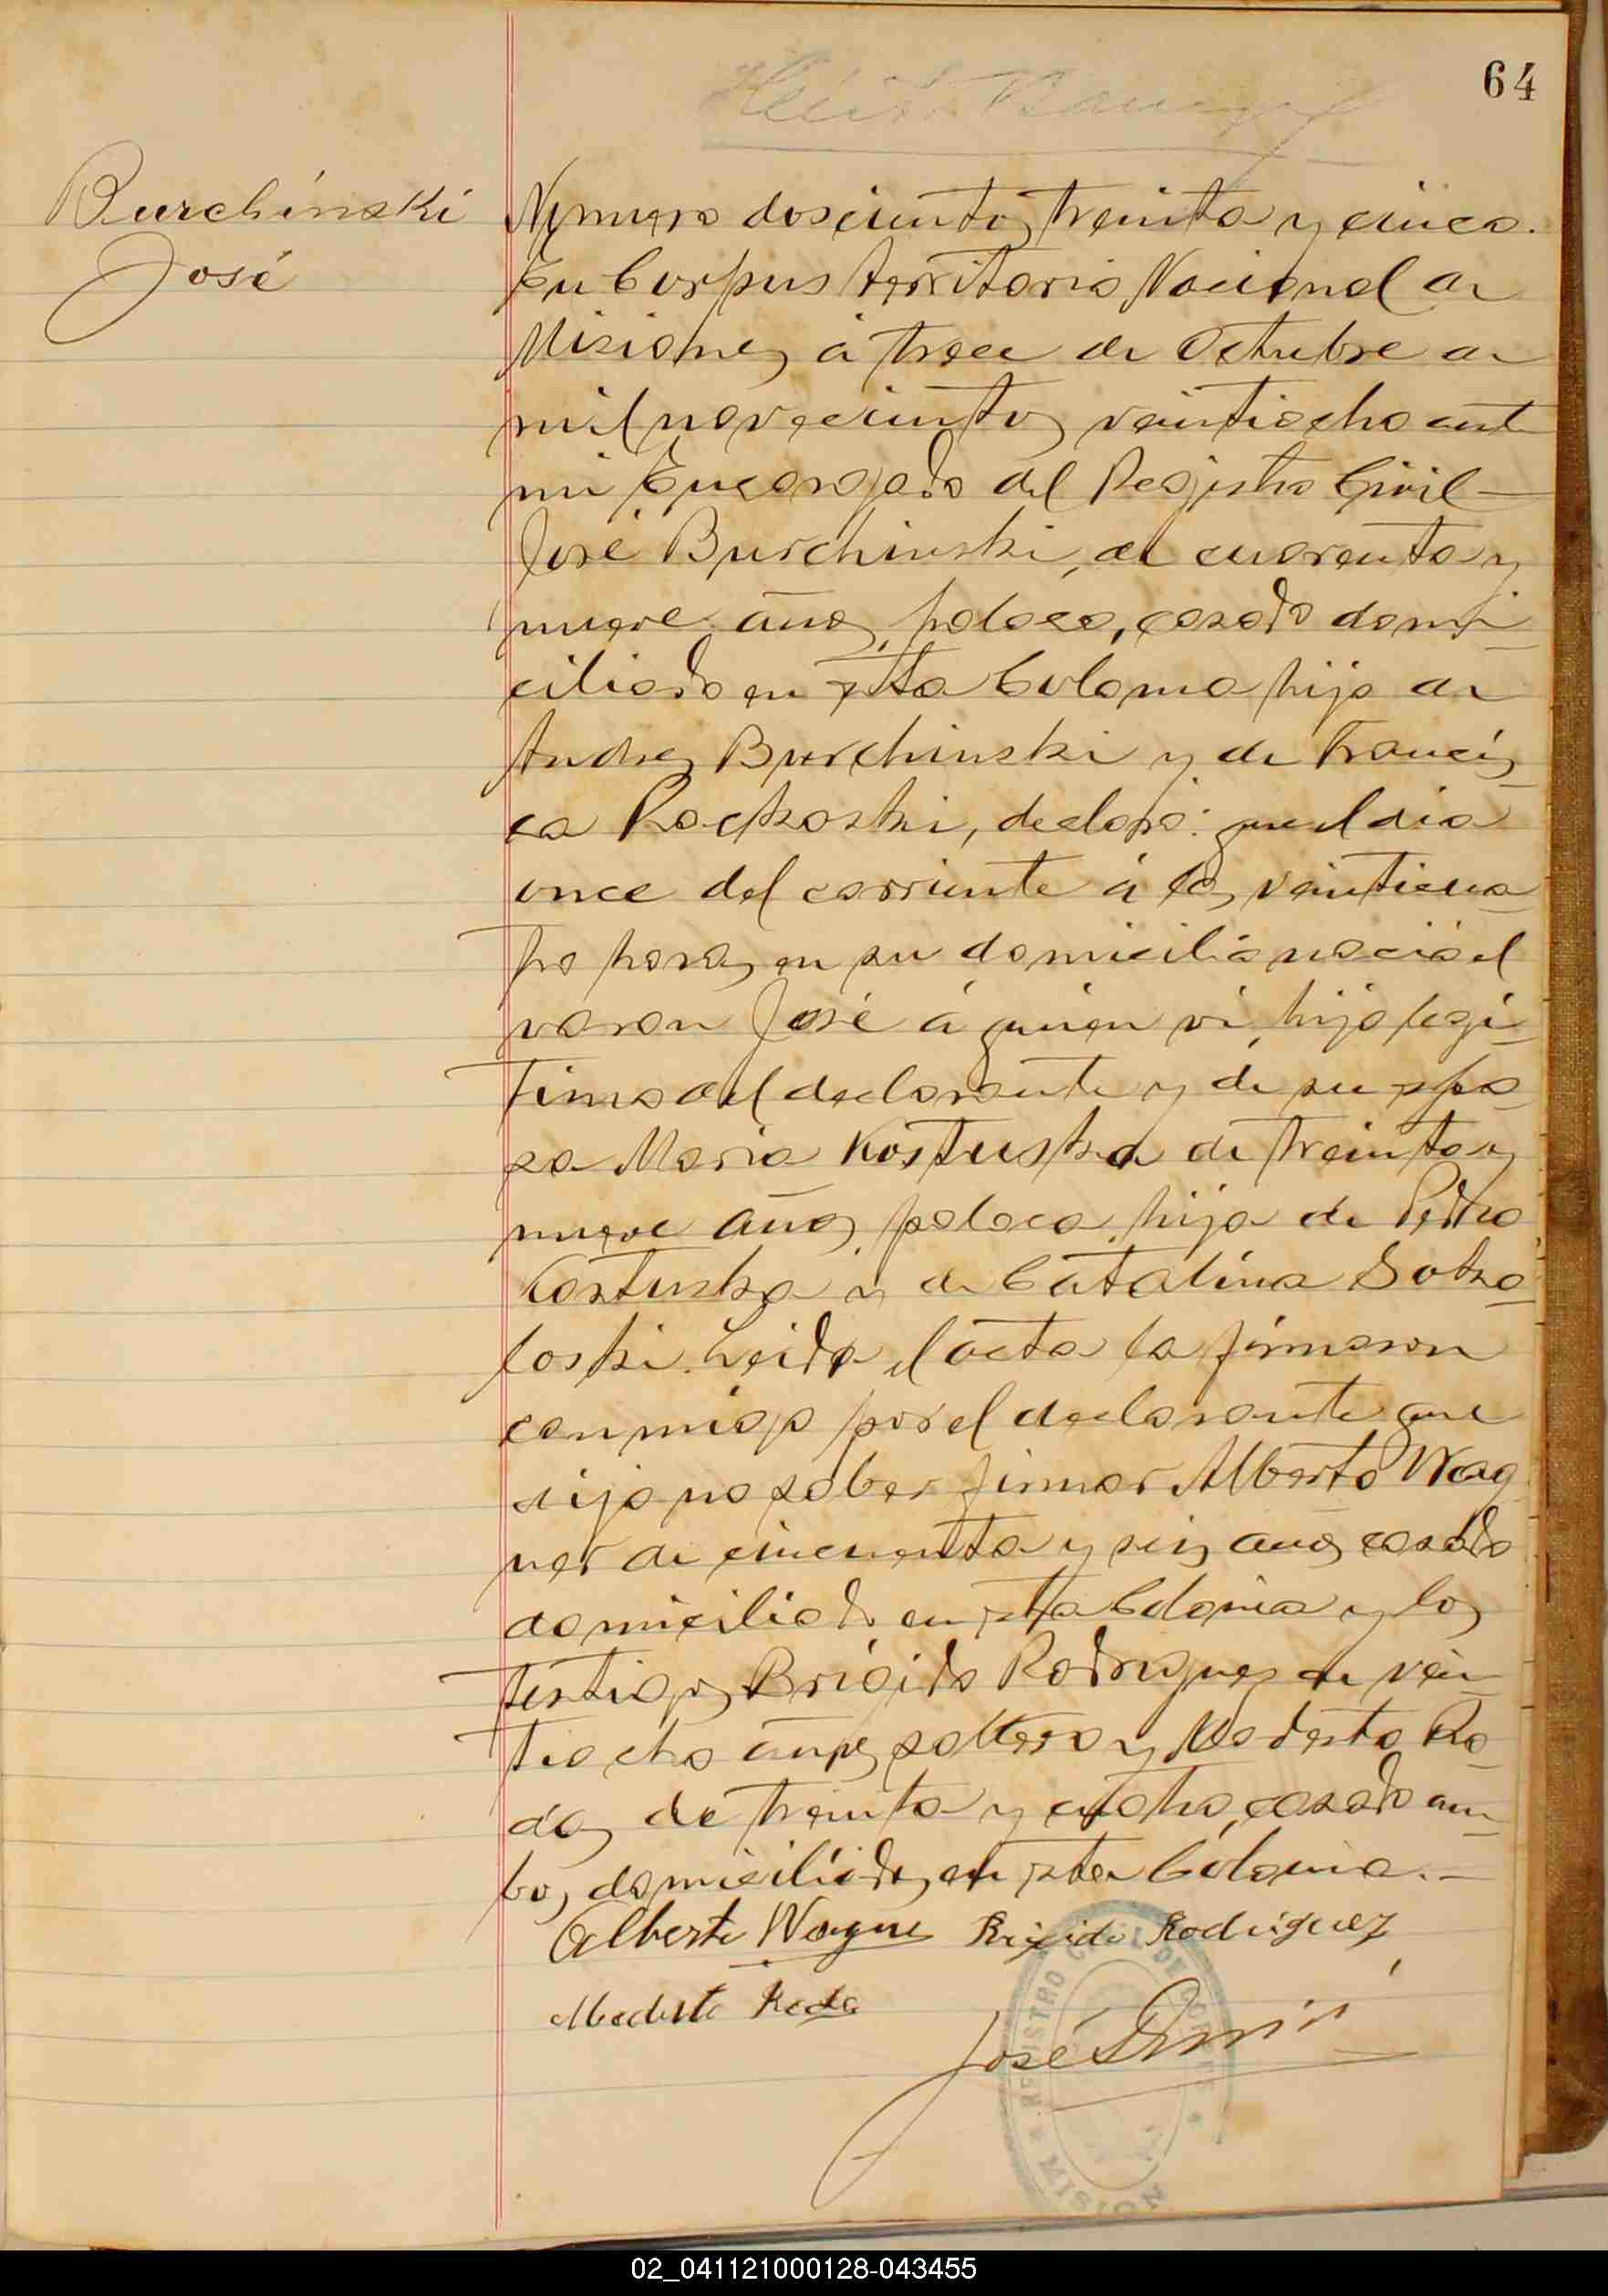 64
Burchinski
José
Número doscientos treinta y cinco.
En Corpus Territorio Nacional de
Misiones, á trece de Octubre de
mil novecientos veintiocho ante
mi Encargado del Registro Civil —
José Burchinski, de cuarenta y
nueve años, polaco, casado domi
ciliado en esta Colonia hijo de
Andres Burchinski y de Francis
ca Rockoski, declaró: que el dia
once del corriente á las veinticua
tro horas, en su domicilio nació el
varon José á quien vi, hijo legi
timo del declarante y de su espo
sa Maria Kostuska de treinta y
nueve años, polaca, hija de Pedro
Kostuska y de Catalina Soko
loski. Leida el acta la firmaron
conmigo por el declarante que
dijo no saber firmar Alberto Wag
ner de cincuenta y seis años casado
domiciliado en esta Colonia y los
testigos Brigido Rodriguez de vein
tiocho años, soltero y Modesto Ro
das de treinta y cuatro, casado am
bos domiciliados en esta Colonia. —
Alberto Wagner Brigido Rodriguez
Modesto Roda
José
REGISTRO CIVIL DE CORPUS
MISIONES
02_041121000128-043455